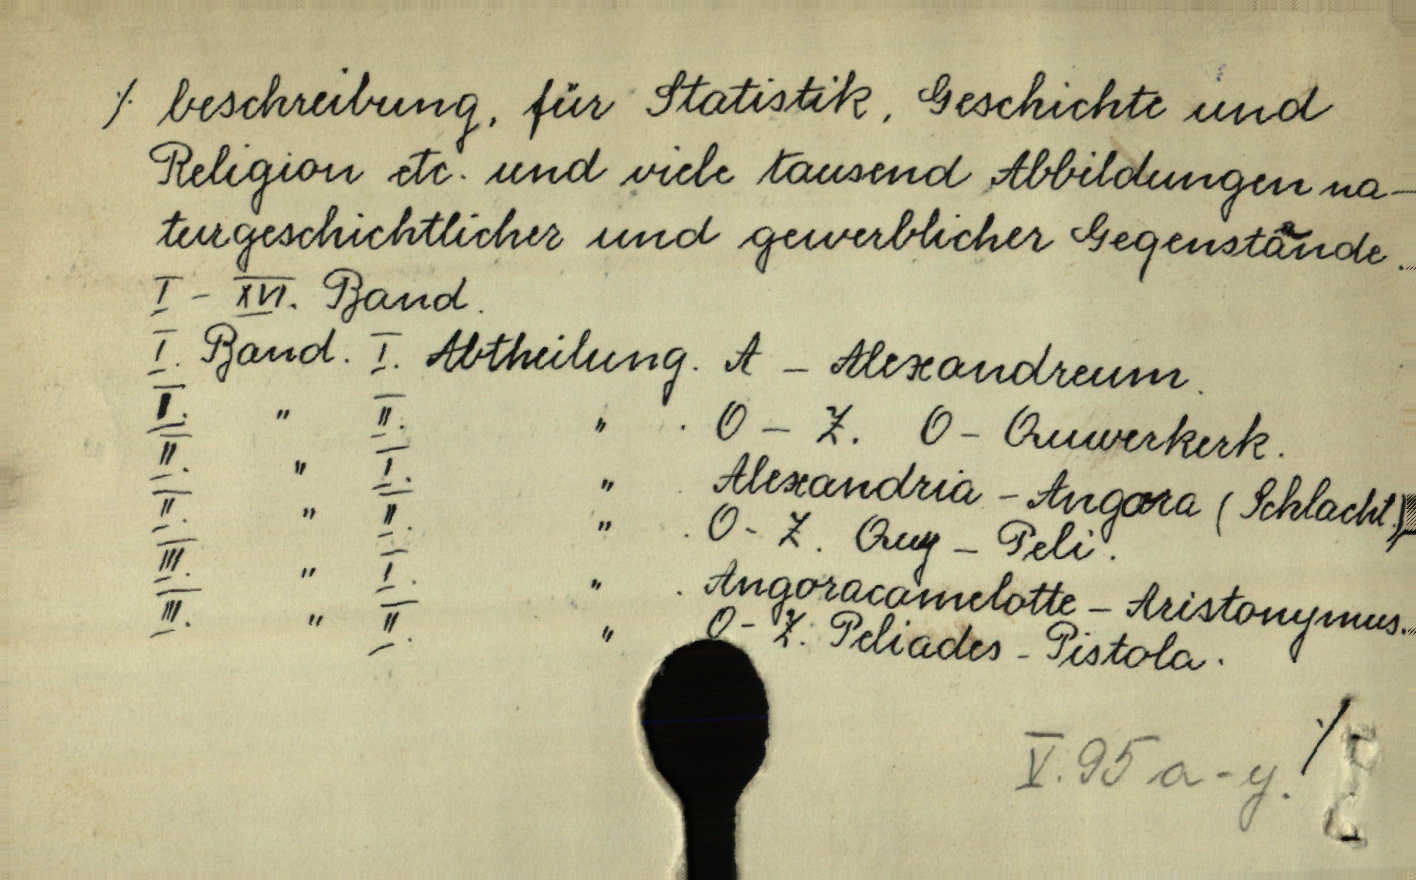 ./. beschreibung, für Statistik, Geschichte und
Religion etc. und viele tausend Abbildungen na-
turgeschichtlicher und gewerblicher Gegenstände.
I - XVI. Band.
I. Band. I. Abtheilung. A - Alexandreum.
I. " II. " . O - Z. O - Ouwerkerk.
II. " I. " . Alexandria - Angora (Schlacht.)
II. " II. " . O - Z. Ouy - Peli.
III. " I. " . Angoracamelotte - Aristonymus.
III. " II. " O - Z. Peliades - Pistola.
V. 95 a - y. ./.